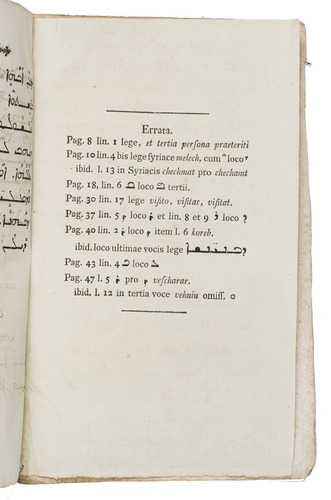 Errata.
Pag. 8 lin. 1 lege, et tertia perſona praeteriti
Pag. 10 lin. 4 bis lege ſyriace melech, cum loco
ibid. l. 13 in Syriacis chechmat pro chechamt
Pag. 18, lin. 6 ܒ loco ܒ tertii.
Pag. 30 lin. 17 lege viſito, viſitar, viſitat.
Pag. 37 lin. 5 loco et lin. 8 et 9 loco ?
Pag. 40 lin. 2 loco item l. 6 koreb.
ibid. loco ultimae vocis lege
Pag. 43 lin. 4 loco
Pag. 47 l. 5 pro veſcharar.
ibid. l. 12 in tertia voce vehuiu omiſſ. o